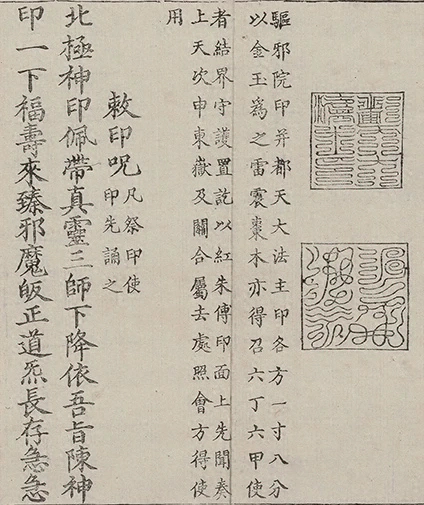 驅邪院印并都天大法主印各方一寸八分
以金玉爲之雷震棗木亦得召六丁六甲使
者結界守護置訖以紅朱傳印面上先聞奏
上天次申東嶽及關合屬去處照會方得使
用
敕印呪凡祭印使
印先誦之
北極神印佩帶真靈三師下降依吾旨陳神
印一下福壽來臻邪魔皈正道炁長存急急